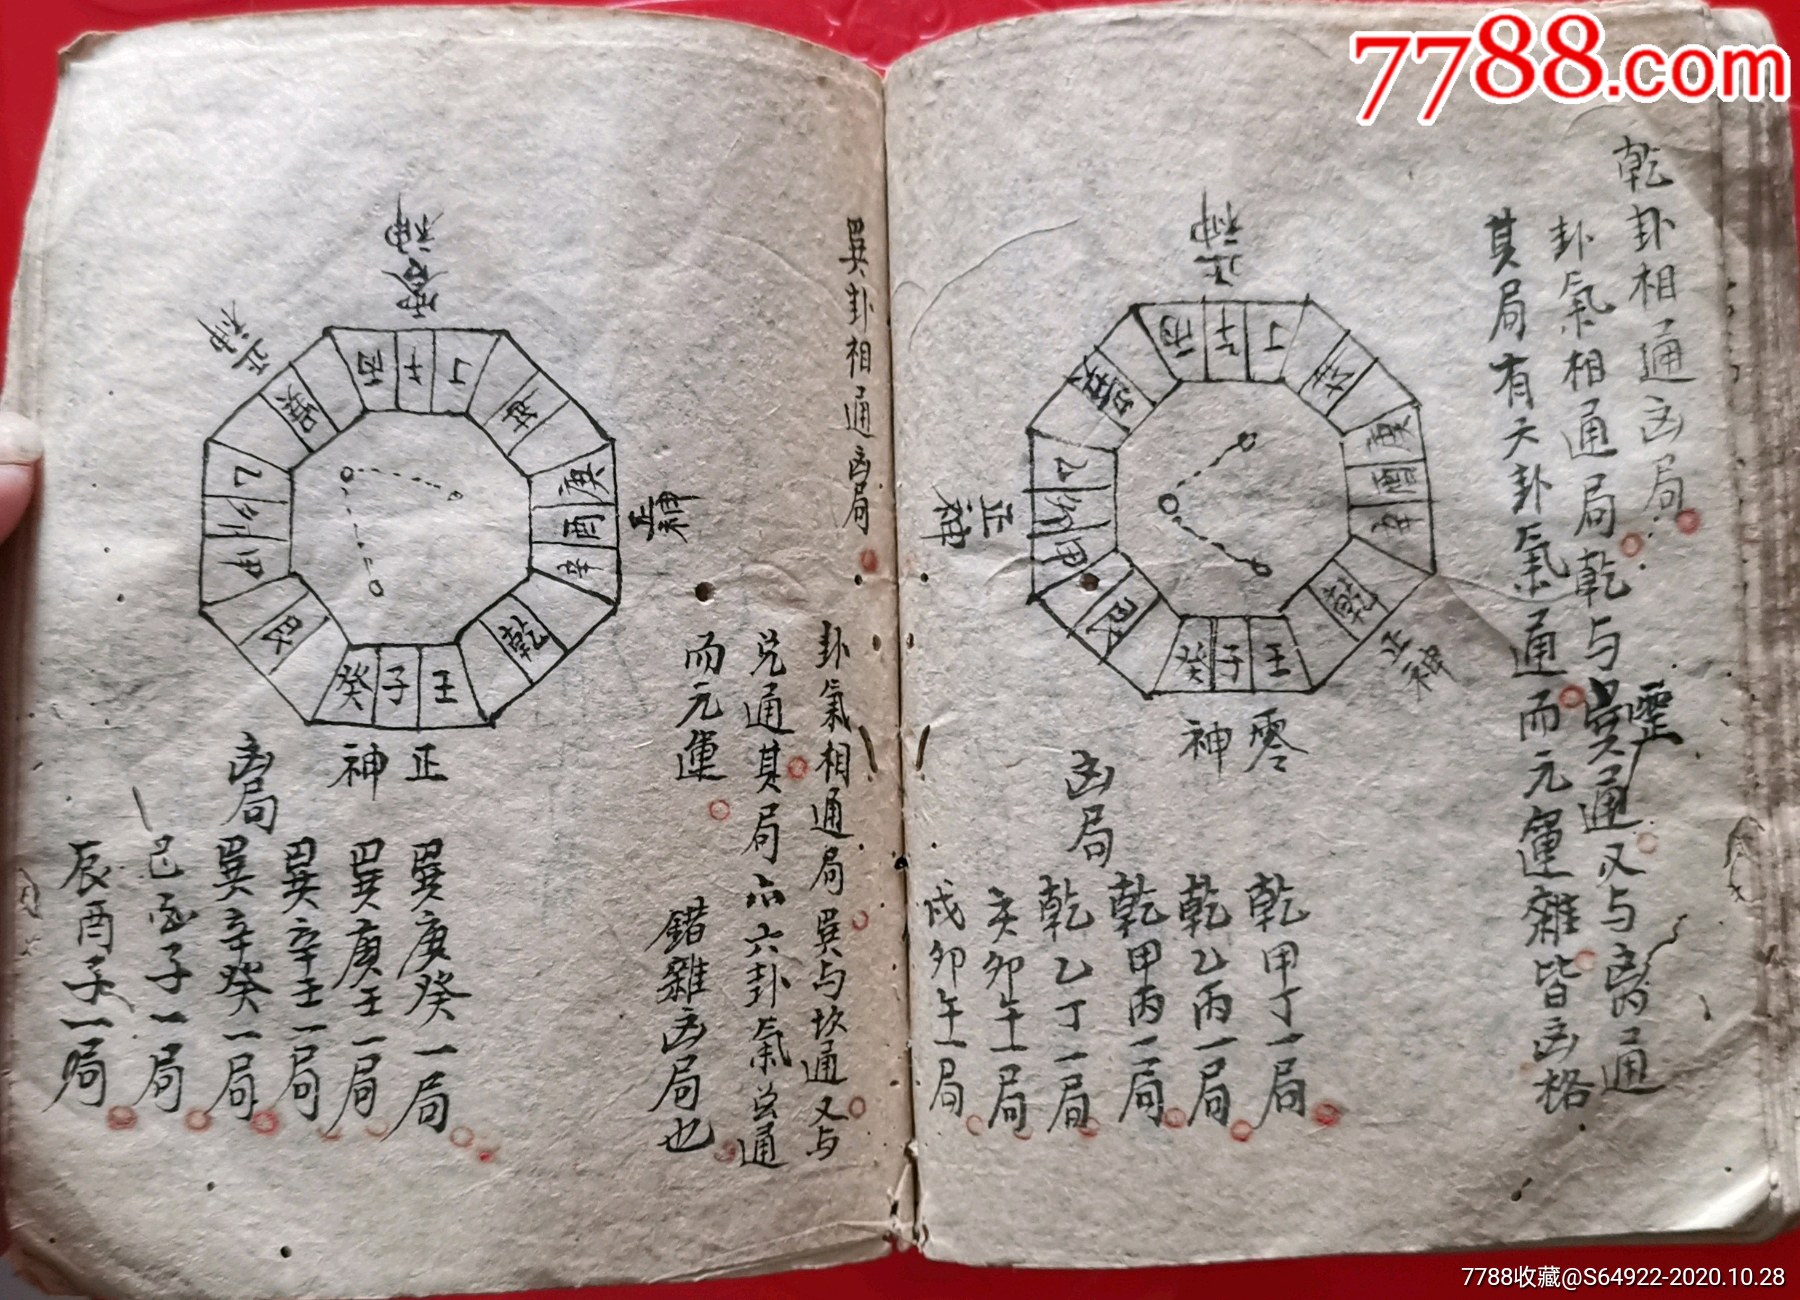 7788.com
乾卦相通凶局
卦氣相通局乾与巽通又与离通
震
其局有六卦氣通而元運雜皆凶格
正神
丙午丁
坤
庚酉辛
乾
壬子癸
艮
甲卯乙
巽
正神
正神
零神
凶局
乾甲丁一局
乾乙丙一局
乾甲丙一局
乾乙丁一局
亥卯午一局
戌卯午一局
巽卦相通凶局
卦氣相通局巽与坎通又与
兑通其局亦六卦氣总通
而元運
錯雜凶局也
零神
正神
丙午丁
坤
庚酉辛
乾
壬子癸
艮
甲卯乙
巽
正神
正神
凶局
巽庚癸一局
巽庚壬一局
巽辛壬一局
巽辛癸一局
巳酉子一局
辰酉子一局
7788收藏@S64922-2020.10.28